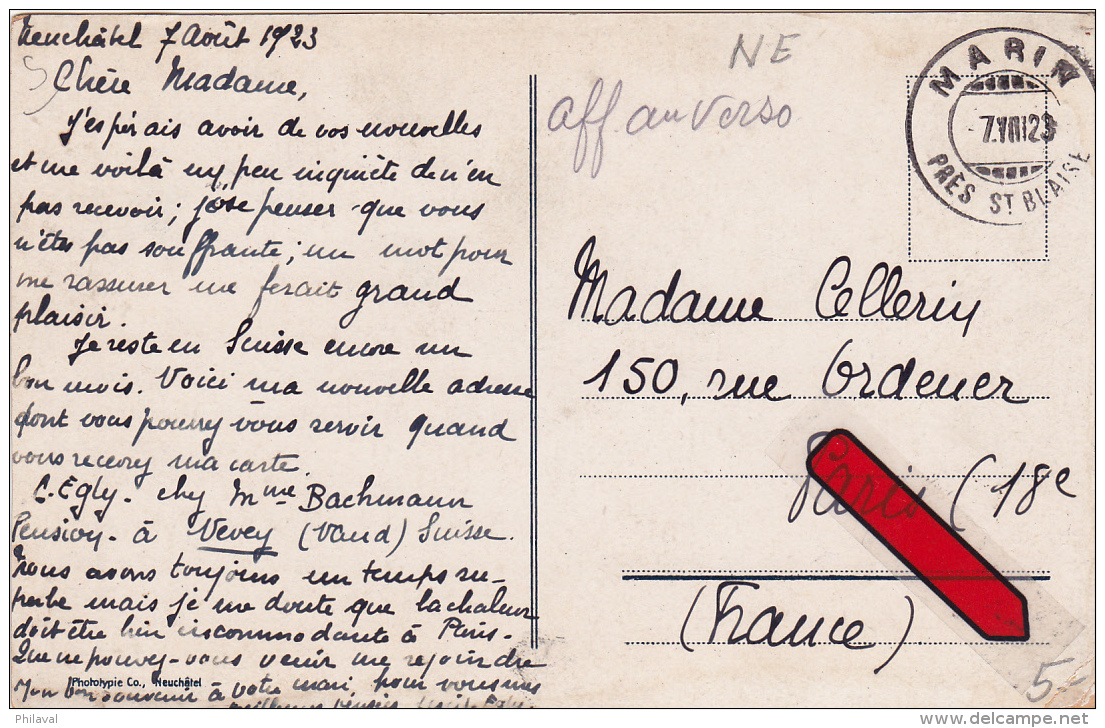 Neuchâtel 7 Août 1923
Chère Madame,
J'espérais avoir de vos nouvelles
et me voilà un peu inquiète de n'en
pas recevoir; j'ose penser que vous
n'êtes pas souffrante; un mot pour
me rassurer me ferait grand
plaisir.
Je reste en Suisse encore un
bon mois. Voici ma nouvelle adresse
dont vous pourrez vous servir quand
vous recevrez ma carte.
C. Egly - chez Mme Bachmann
Pension - à Vevey (Vaud) Suisse.
Nous avons toujours un temps su-
perbe mais je me doute que la chaleur
doit être bien incommodante à Paris -
Que ne pouvez-vous venir me rejoindre
Mon bon souvenir à votre mari, pour vous mes
Egly
Phototypie Co., Neuchâtel
NE
aff au verso
MARIN
-7.VIII 23
PRÈS ST BLAISE
Madame Cellerin
150, rue Ordener
Paris (18e
(France)
5-
Philaval
www.delcampe.net